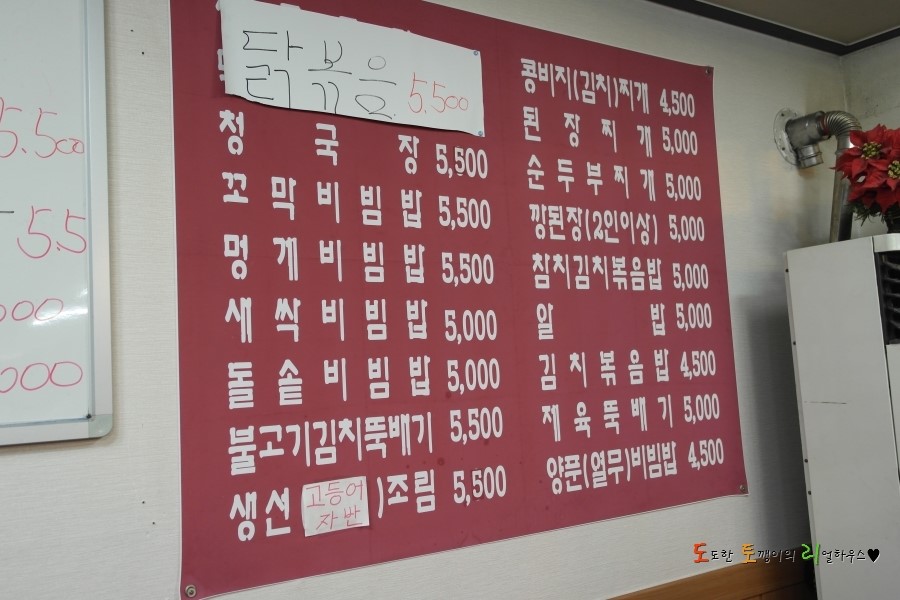 5.500
5.5
000
000
닭볶음 5.500
청국장 5,500
꼬막비빔밥 5,500
멍게비빔밥 5,500
새싹비빔밥 5,000
돌솥비빔밥 5,000
불고기김치뚝배기 5,500
생선 고등어 자반 )조림 5,500
콩비지(김치)찌개 4,500
된장찌개 5,000
순두부찌개 5,000
깡된장(2인이상) 5,000
참치김치볶음밥 5,000
알밥 5,000
김치볶음밥 4,500
제육뚝배기 5,000
양푼(열무)비빔밥 4,500
도도한 토깽이의 리얼하우스♥